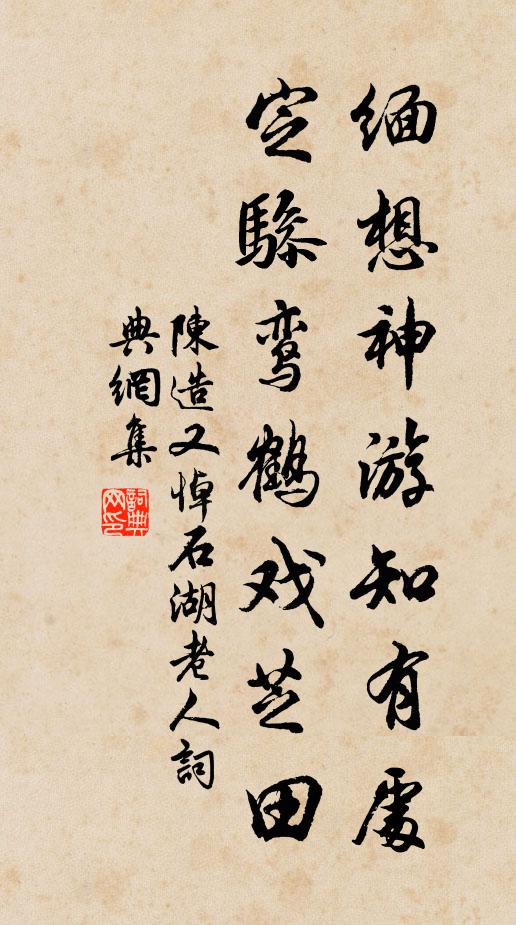 缅想神游知有處
定驂鸾鶴戏芝田
陳造又悼石湖老人詞
典網集
詞典
网印